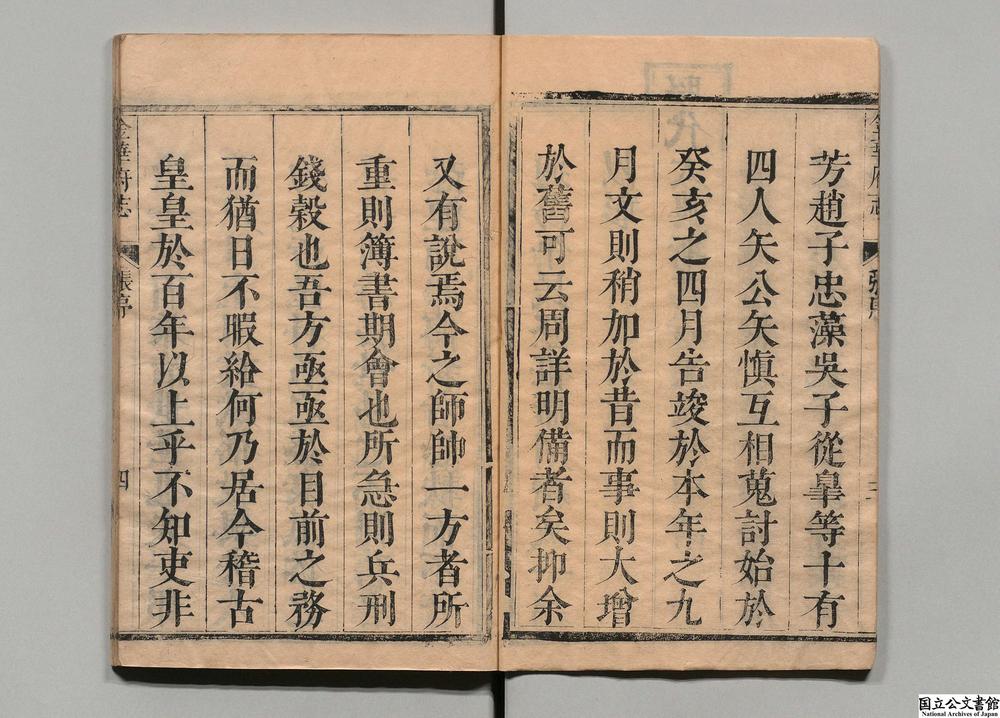 芳趙子忠藻吳子從臯等十有
四人矢公矢愼互相蒐討始於
癸亥之四月告竣於本年之九
月文則稍加於昔而事則大增
於舊可云周詳明備者矣抑余
又有說焉今之師帥一方者所
重則簿書期會也所急則兵刑
錢穀也吾方亟亟於目前之務
而猶日不暇給何乃居今稽古
皇皇於百年以上乎不知吏非
金華府志
張序
四
国立公文書館
National Archives of Japan